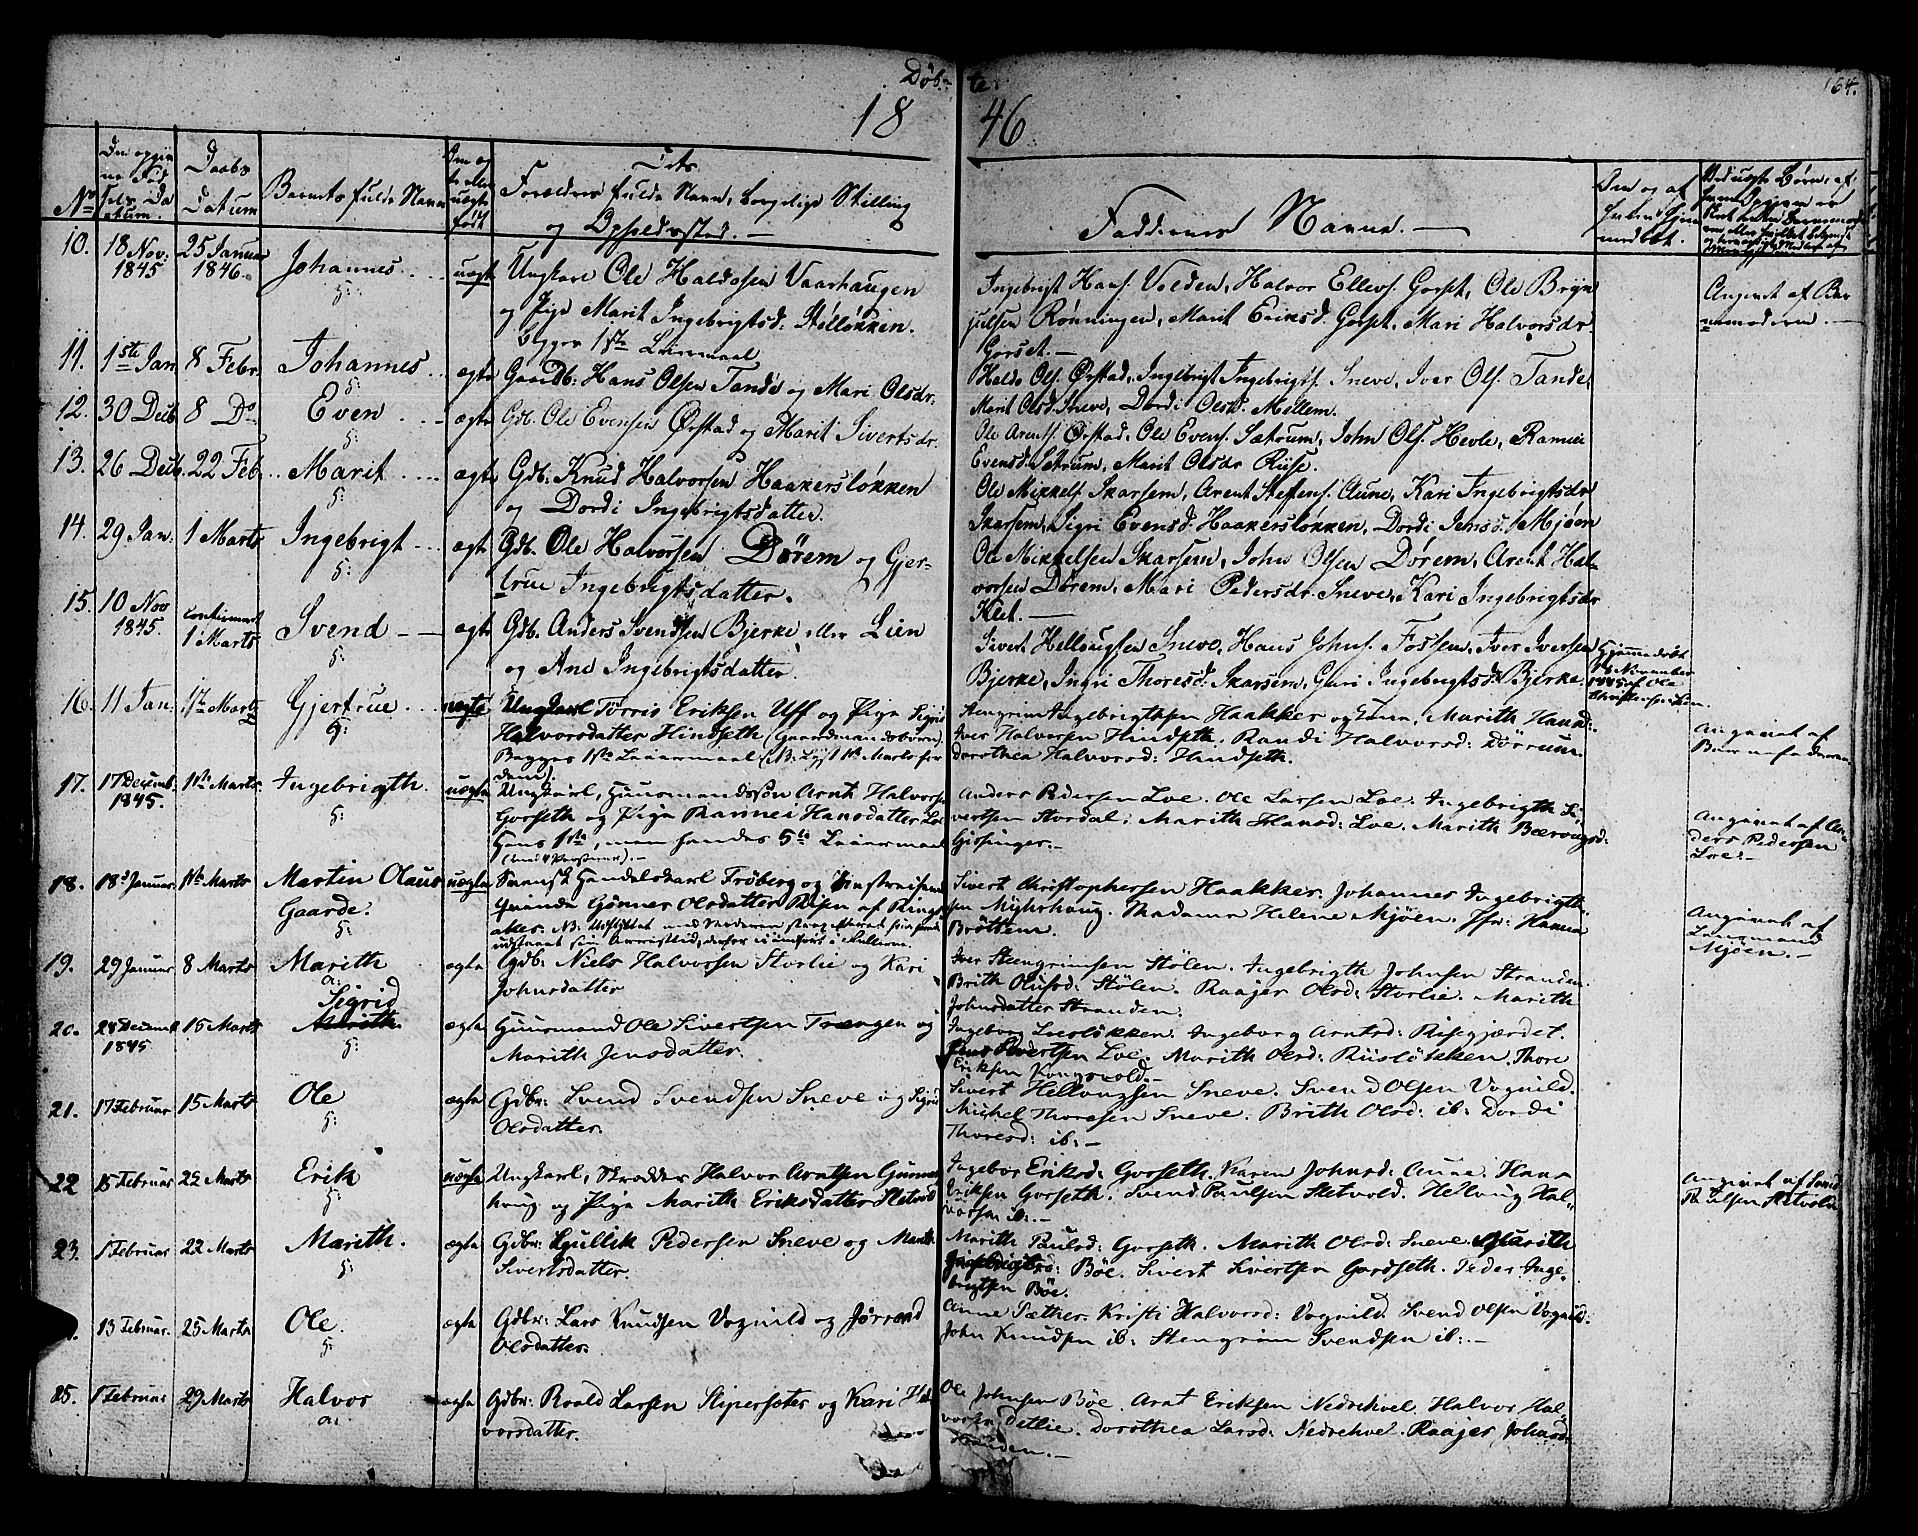 Døb-
te.
164.
18
46
No
Daabs
Datum
Barnets fulde Navn
Forældres fulde Navn, borgerlige Stilling
og Opholdssted. —
Faddernes Navne. —
10.
18 Nov.
1845
25 Januar
1846.
Johannes
uægte
Ungkarl Ole Haldosen Vaarhaugen
og Pige Marit Ingebrigtsd. Stølløkken.
begges 1ste Leiermaal
Ingebrigt Hans. Volden, Halvor Ellevs. Gorset, Ole Bryn
julsen Rønningen, Marit Eriksd. Gorset, Mari Halvorsdr
Gorset. —
Angivet af Bar
nemoderen. —
11.
1ste Jan.
8 Febr.
Johannes
ægte
Gaardb. Hans Olsen Tande og Mari Olsdr.
Haldo Ols. Ørstad, Ingebrigt Ingebrigts. Sneve, Iver Ols. Tande,
Marit Olsd. Sneve, Dordi Olsd. Mellem.
12.
30 Decb.
8 Do
Even
ægte
Gdb. Ole Evensen Ørstad og Marit Sivertsdr.
Ole Arents. Ørstad, Ole Evens. Sætrum, John Ols. Hevle, Rannei
Evensd. Sætrum, Marit Olsdr Riise.
13.
26 Decb.
22 Feb.
Marit
ægte
Gdb. Knud Halvorsen Haakersløkken
og Dordi Ingebrigtsdatter.
Ole Mikkels. Skarsem, Arent Steffens. Aune, Kari Ingebrigtsdr
Skarsem, Sigri Evensd. Haakersløkken, Dordi Jensd. Mjøen
14.
29 Jan.
1 Marts
Ingebrigt
ægte
Gdb. Ole Halvorsen Dørem og Gjer-
true Ingebrigtsdatter.
Ole Mikkelsen Skarsem, John Olsen Dørem, Arent Hal-
vorsen Dørem, Mari Pedersdr. Sneve, Kari Ingebrigtsdr
Klet. —
15.
10 Nov
1845.
confirmert
1 Marts
Svend
ægte
Gdb. Anders Svendsen Bjerke eller Lien
og Ane Ingebrigtsdatter.
Sivert Hellaugsen Sneve, Hans Johns. Fossem, Iver Iversen
Bjerke, Ingri Thoresd. Skarsem, Guri Ingebrigtsd. Bjerke.
Hjemmedøbt
November
1845 af Ole
16.
11 Jan.
1ste Marts
Gjertrue
uægte
Ungkarl Torris Eriksen Uff og Pige Sigrid
Halvorsdatter Hindseth (Gaardmandsbørn).
Begges 1ste Leiermaal (NB. Lyst 1ste Marts for
dem).
Stengrim Ingebrigtsen Haakker og Kona, Marith Hansd:
Iver Halvorsen Hindseth. Randi Halvorsd: Dørrum
Dorothea Halvorsd: Hindseth.
Angivet af
Barnefaderen
17.
17 Decemb.
1845.
1ste Marts.
Ingebrigth.
uægte
Ungkarl, Huusmandssøn Arnt Halvorsen
Gorseth og Pige Rannei Hansdatter Loe
Hans 1ste, men hendes 5te Leiermaal
Anders Pedersen Loe. Ole Larsen Loe. Ingebrigth Si-
vertsen Stordal. Marith Hansd: Loe. Marith Bærongsd:
Gissinger. —
Angivet af An-
ders Pedersen
Loe. —
18.
18de Januar.
1ste Marts
Martin Olaus
Gaarde.
uægte
Svensk Handelskarl Frøberg og
Gunner Olsdatter Risen af Ring-
Sivert Christophersen Haakker. Johannes Ingebrigth-
sen Myhrhaug. Madame Helene Mjøen. Jfr: Hanna
Brøttem.
Angivet af
Lensmand
Mjøen. —
19.
29 Januar
8 Marts
Marith
ægte
Gdb: Niels Halvorsen Storlie og Kari
Johnsdatter
Iver Steengrimsen Stølen. Ingebrigth Johnsen Stranden.
Brith Olsd: Stølen. Raajer Olsd: Storlie. Marith
Johnsdatter Stranden.
20.
28 Decemb.
1845
15 Marts
Sigrid
Marith.
ægte
Huusmand Ole Sivertsen Trøngen og
Marith Jensdatter.
Ingeborg Loesløkken. Ingeborg Arntsd: Risegjærdet.
Jens Sivertsen Loe. Marith Olsd: Riisløkken. Thore
Eriksen Kongsvold. —
21.
17 Februar
15 Marts
Ole
ægte
Gdbr: Svend Svendsen Sneve og Sigrid
Olsdatter.
Sivert Hellaugsen Sneve. Svend Olsen Vognild.
Michel Thoresen Sneve. Brith Olsd: ib: Dordi
Thoresd: ib: —
22
15 Februar
22 Marts
Erik
uægte
Ungkarl, Skrædder Halvor Arntsen Gunnes-
haug og Pige Marith Eriksdatter Sletvold
Ingebor Eriksd: Gorseth. Karen Johnsd: Aune. Hans
Eriksen Gorseth. Svend Paulsen Sletvold. Hellaug Hal-
vorsen ib: —
Angivet af Svend
Paulsen Sletvold
23.
1 Februar
22 Marts
Marith.
ægte
Gdbr: Gullik Pedersen Sneve og Marit
Sivertsdatter.
Marith Paulsd: Gorseth. Marith Olsd: Sneve. Marith
Ingebrigtsd: Böe. Sivert Sivertsen Gorseth. Peder Inge-
brigtsen Böe.
13 Februar.
25 Marts
Ole.
ægte
Gdbr: Lars Knudsen Vognild og Jørrand
Olsdatter.
Anne Sæther. Kristi Halvorsd: Vognild. Svend Olsen Vognild:
John Knudsen ib: Stengrim Svendsen ib: —
25.
1 Februar
29 Marts
Halvor
ægte
Gdbr: Roald Larsen Stipersæter og Kari Hal-
vorsdatter.
Ole Johnsen Böe. Arnt Eriksen Nedrehoel. Halvor Hal-
vorsen Detlie. Dorothea Larsd: Nedrehoel. Raajer Johnsd:
Stranden. —